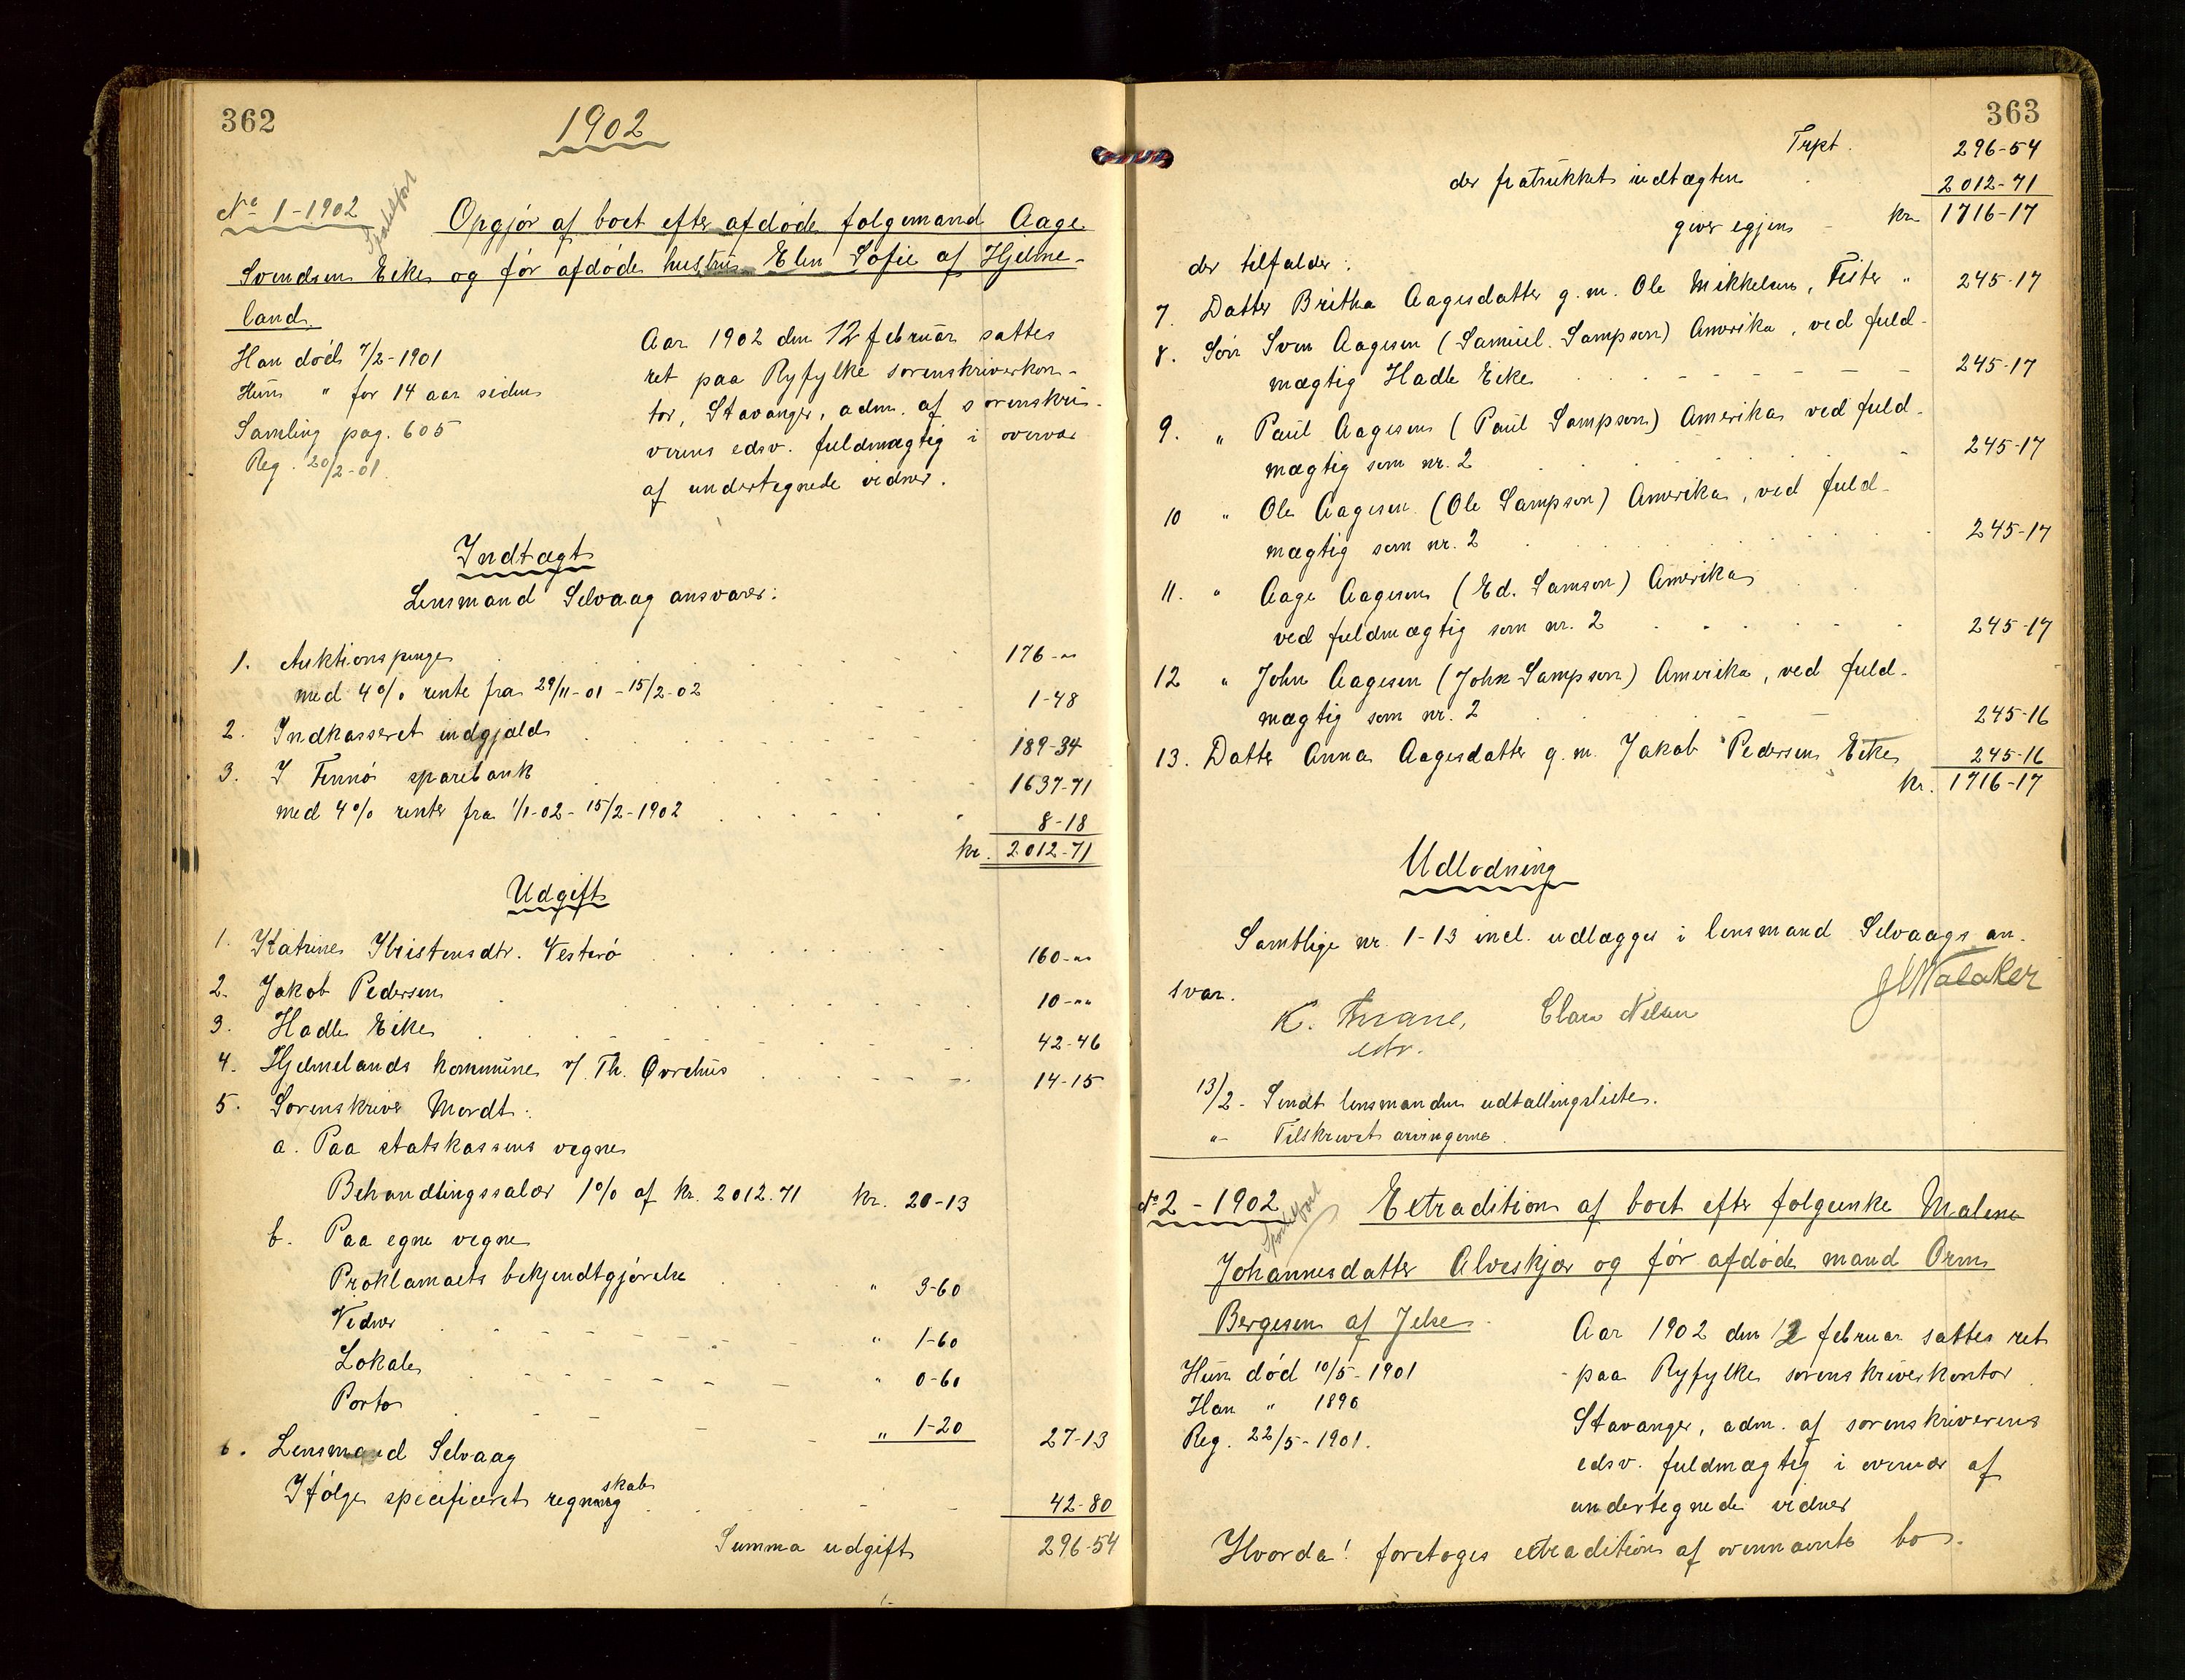 362
1902
No 1-1902
Opgjør af boet efter afdøde folgemand Aage
Svendsen Eike og før afdøde hustru Elen Sofie af Hjelme-
land.
Han død 7/2-1901
Hun " for 14 aar siden
Samling pag. 605
Reg. 20/2-01.
Aar 1902 den 12 februar sattes
ret paa Ryfylke sorenskriverkon-
tor, Stavanger, adm. af sorenskri-
verens edsv. fuldmægtig i overvær
af undertegnede vidner.
Indtægt
Lensmand Selvaag ansvarer:
1. Auktionspenge 176-"
med 4% rente fra 29/11-01 - 15/2-02 1-48
2. Indkasseret indgjæld 189-34
3. I Finnø sparebank 1637-71
med 4% renter fra 1/1-02 - 15/2-1902 8-18
kr. 2012-71
Udgift
1. Katrine Kristensdtr. Vesterø 160-"
2. Jakob Pedersen 10-"
3. Hadle Eike 42-46
4. Hjelmelands kommune v/ Th. Øvrehus 14-15
5. Sorenskriver Mordt:
a. Paa statskassens vegne
Behandlingssalær 1% af kr. 2012.71 kr. 20-13
b. Paa egne vegne
Proklamaets bekjendtgjørelse " 3-60
Vidner " 1-60
Lokale " 0-60
Porto " 1-20 27-13
6. Lensmand Selvaag
Ifølge specificeret regnskab 42-80
Summa udgift 296-54
363
Trpt. 296-54
der fratrukket indtægten 2012-71
giver egjen kr. 1716-17
der tilfalder:
7. Datter Britha Aagesdatter g.m. Ole Mikkelsen, Fister " 245-17
8. Søn Sven Aagesen (Samuel Sampson) Amerika, ved fuld-
mægtig Hadle Eike 245-17
9. " Paul Aagesen (Paul Sampson) Amerika ved fuld-
mægtig som nr. 2 245-17
10 " Ole Aagesen (Ole Sampson) Amerika, ved fuld-
mægtig som nr. 2 245-17
11. " Aage Aagesen (Ed. Samson) Amerika
ved fuldmægtig som nr. 2 245-17
12 " John Aagesen (John Sampson) Amerika, ved fuld-
mægtig som nr. 2 245-16
13. Datter Anna Aagesdatter g.m. Jakob Pedersen Eike 245-16
kr. 1716-17
Udlodning
Samtlige nr. 1-13 incl. udlægges i lensmand Selvaags an-
svar.
K. Thrane, Clara Nilsen
edsv.
13/2- Sendt lensmanden udtallingsliste.
"- Tilskrevet arvingerne.
No 2 - 1902
Extradition af boet efter folgeenke Malene
Johannesdatter Alveskjær og før afdøde mand Orm
Bergesen af Jelse.
Hun død 10/5-1901
Han " 1896
Reg. 22/5-1901.
Aar 1902 den 12 februar sattes ret
paa Ryfylke sorenskriverkontor
Stavanger, adm. af sorenskriverens
edsv. fuldmægtig i overvær af
undertegnede vidner
Hvorda! foretoges extradition af ovennævnte bo.